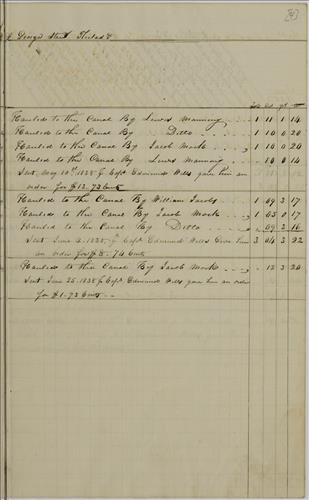 George Philad&
Hauled to the Canal By Lewis Manning 1 11 1 14
Hauled to the Canal By Ditto 1 10 0 20
Hauled to the Canal By Jacob Mock 1 10 0 20
Hauled to the Canal By Lewis Manning 10 0 14
Sent May 10th 1838 Capt Edmund Wells gave him an
order for $12.72 Cents
Hauled to the Canal By William Jacobs 1 09 3 17
Hauled to the Canal By Jacob Mock 1 05 0 17
Hauled to the Canal By Ditto 09 2 16
Sent June 1838 Capt Edmund Wells Gave him
an order for $8.74 Cents
Hauled to the Canal By Jacob Mock 12 3 20
Sent June 25. 1838 Capt Edmund Wells gave him an order
for $1.72 Cents